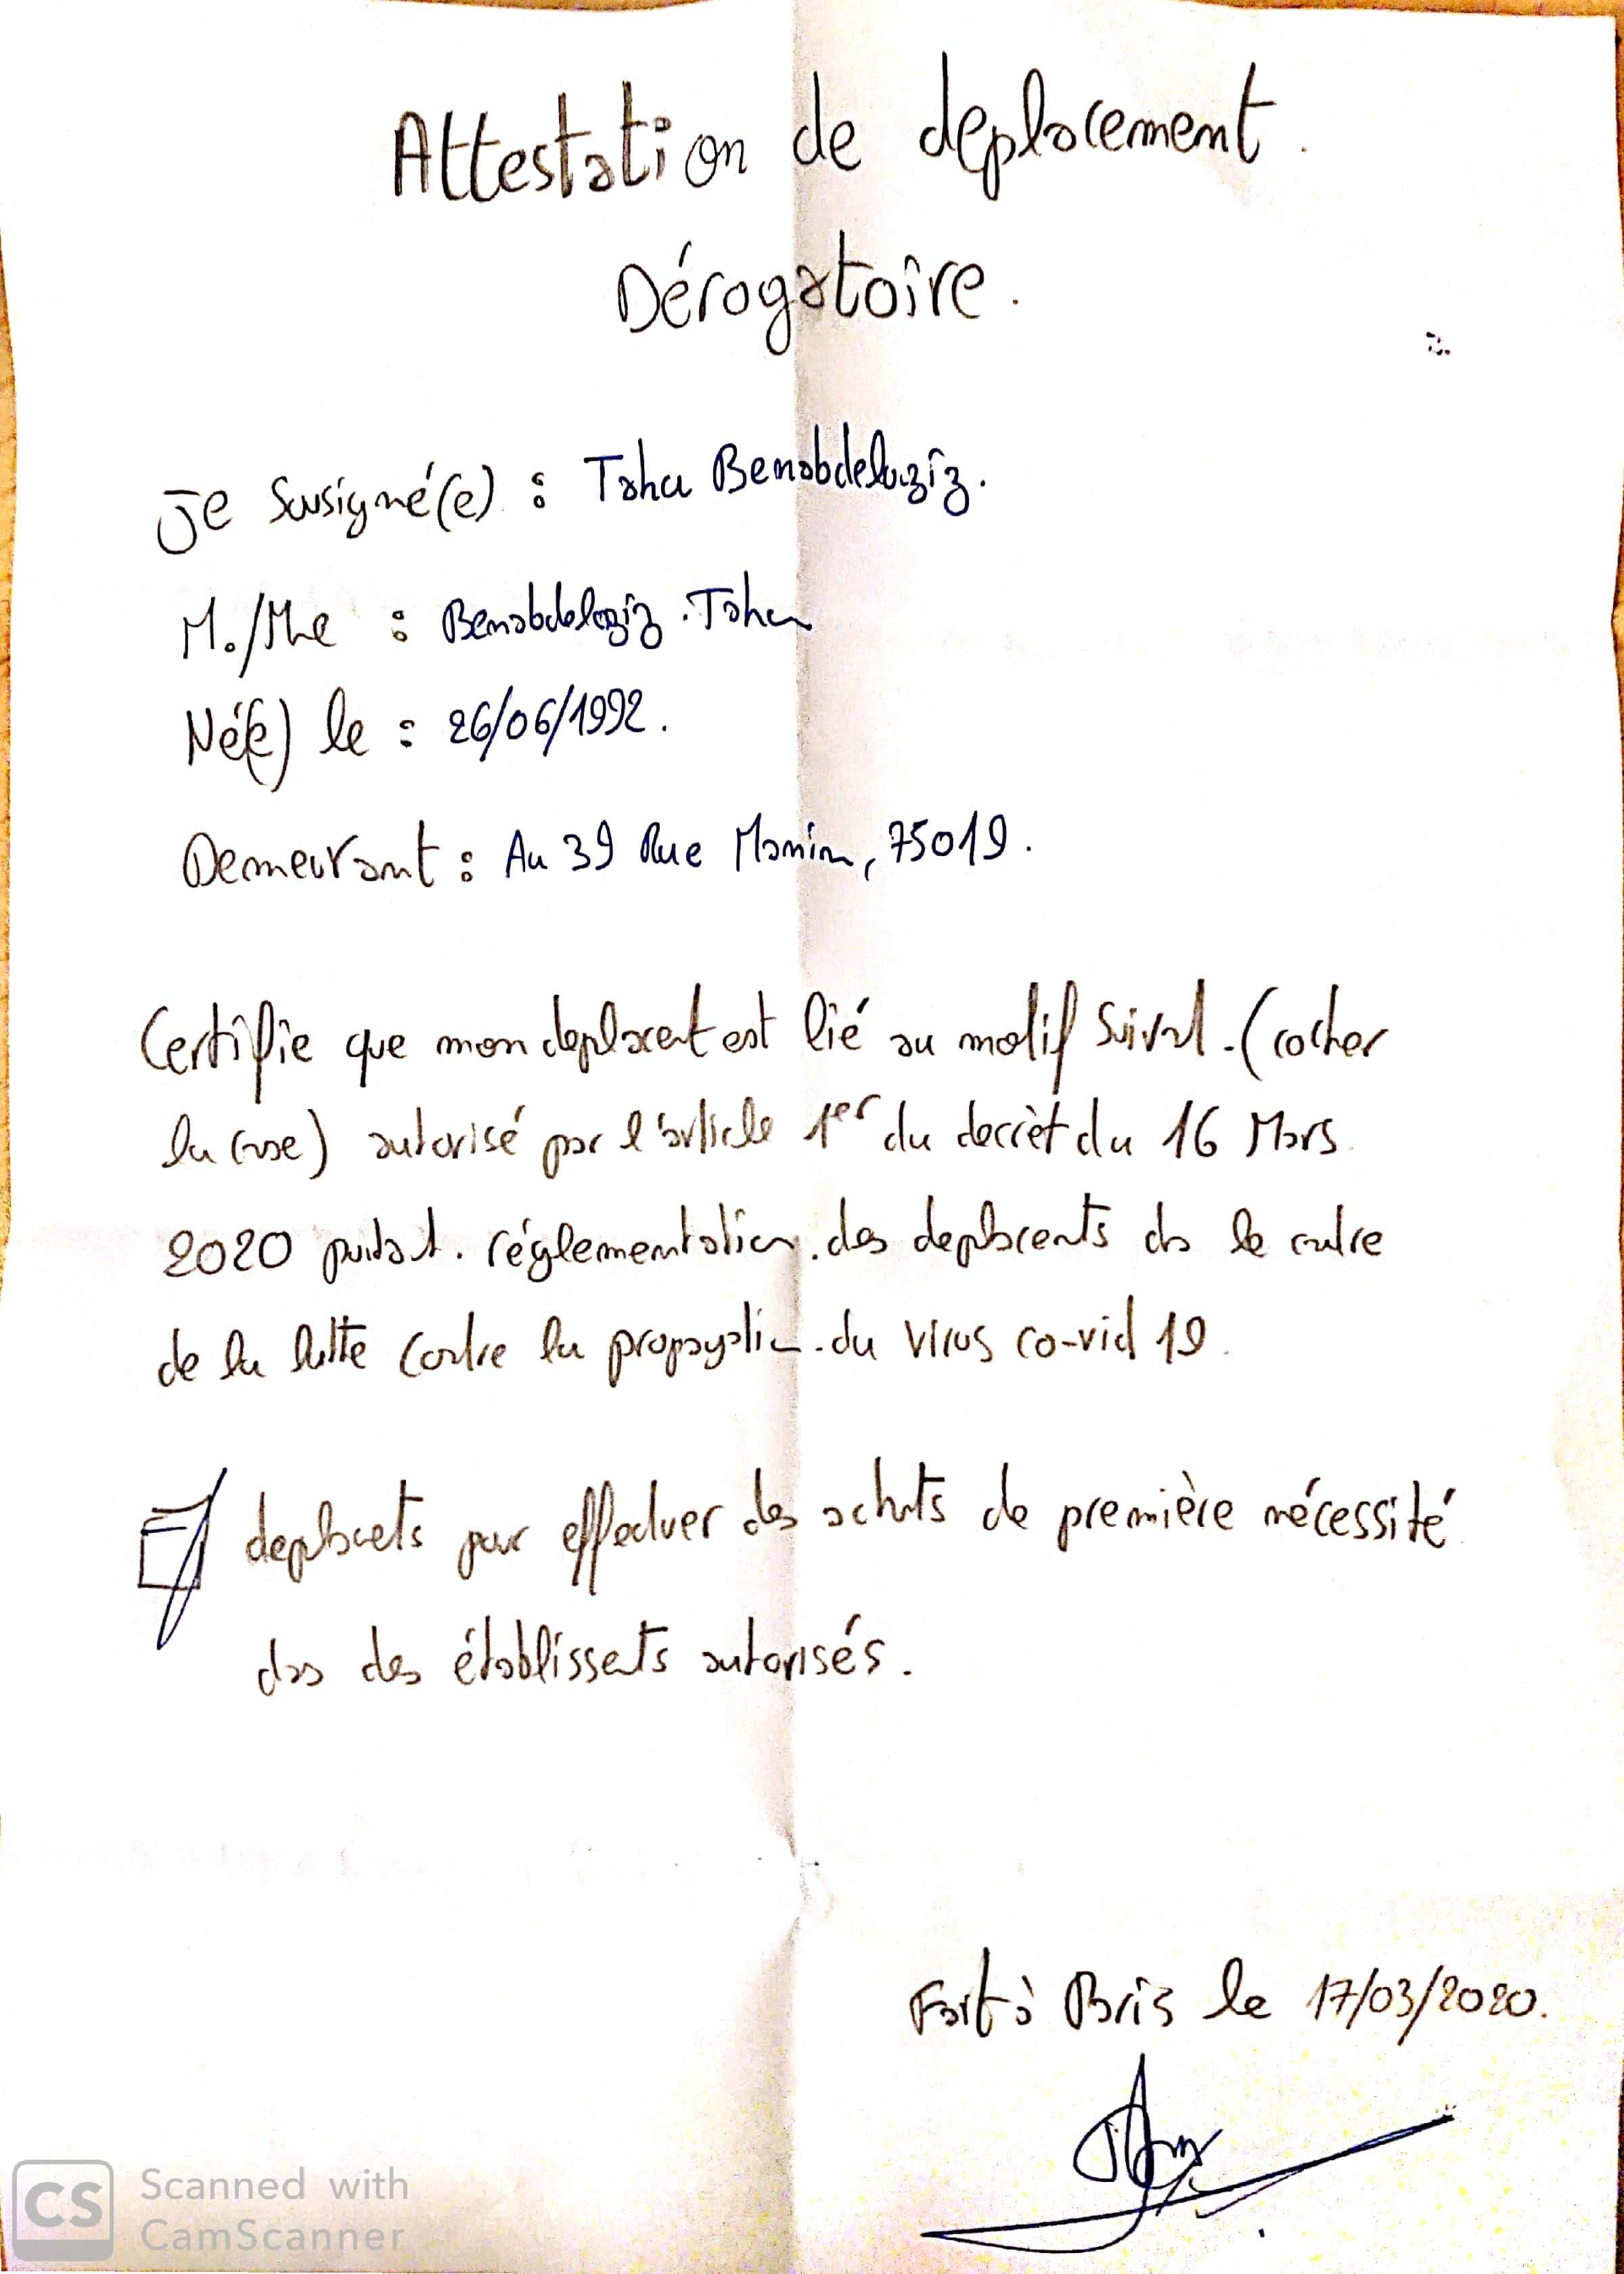 Attestation de deplacement.
Dérogatoire.
Je Sousigné(e) : Taha Benabdelaziz.
M./Mme : Benabdelaziz . Taha
Né(e) le : 26/06/1992.
Demeurant : Au 39 Rue Manin, 75019.
Certifie que mon deplacent est lié au motif Suivat. (cocher
la case) autorisé par l'article 1er du decrèt du 16 Mars
2020 portat. réglementation. des deplacents ds le cadre
de la lutte contre la propagation. du virus co-vid 19.
deplacets pour effectuer des achats de première nécessité
das des établissets autorisés.
Fait à Paris le 17/03/2020.
CS Scanned with
CamScanner